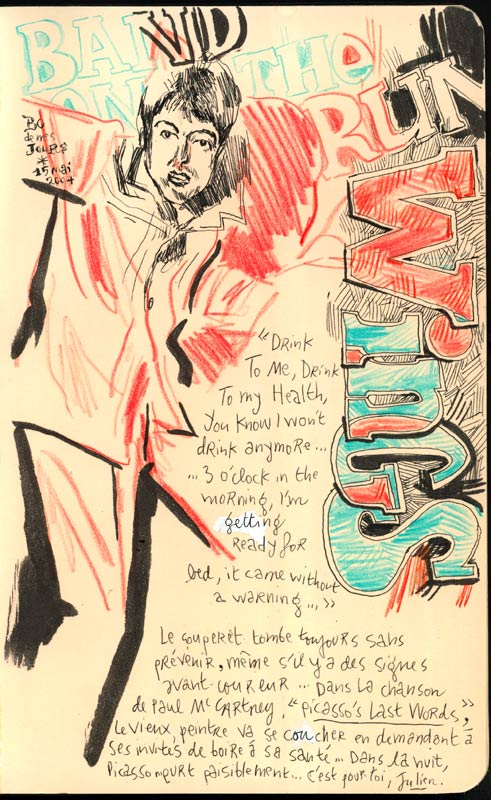 BAND
ON THE
RUN
WiNGS
BO
de mes
JOURS
*
15 mai
2007
"Drink
To Me, Drink
To my Health,
you know I won't
drink anymore...
... 3 o'clock in the
morning, I'm
getting
ready for
bed, it came without
a warning..."
Le couperet tombe toujours sans
prévenir, même s'il y a des signes
avant-coureur... Dans la chanson
de Paul McCartney, "Picasso's Last Words",
le vieux peintre va se coucher en demandant à
ses invités de boire à sa santé... Dans la nuit,
Picasso meurt paisiblement... c'est pour toi, Julien.